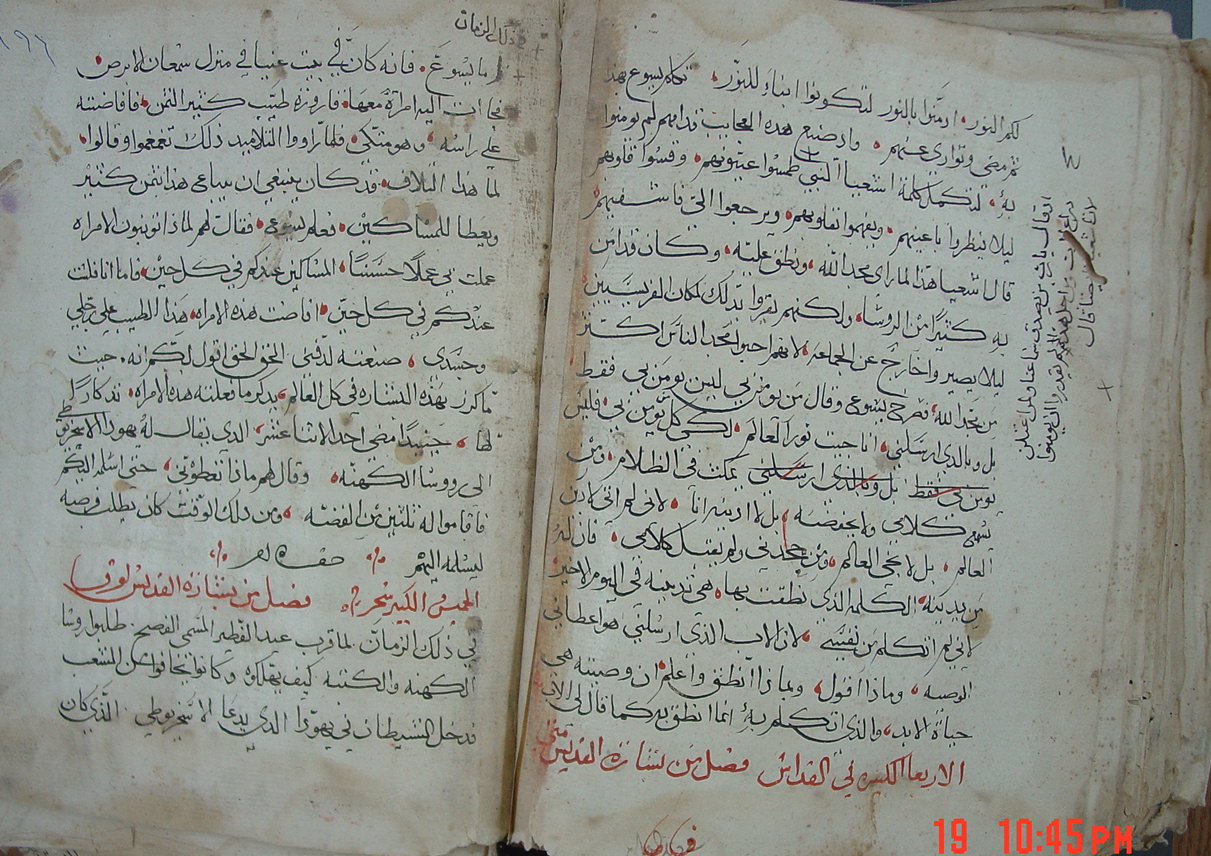 لكم النور. امنوا بالنور لتكونوا ابناء للنور. تكلم يسوع بهذا
ثم مضى وتوارى عنهم. واذ صنع هذه العجايب قدامهم لم يومنوا
به. لتكمل كلمة اشعيا النبي طمسوا عيونهم. وقسوا قلوبهم
ليلا ينظروا باعينهم. ويفهموا بقلوبهم. ويرجعوا الي فاشفيهم
قال اشعيا هذا لما راى مجد الله. ونطق عليه. وكان قد امن
به كثيرا من الروسا. ولكنهم لم يقروا بذلك لمكان الفريسيين
ليلا يصيروا خارج عن الجماعه. لانهم احبوا مجد الناس اكثر
من مجد الله. فصرخ يسوع وقال من يومن بي ليس يومن بي فقط
بل وبالذي ارسلني. انا جيت نور العالم. لكي كل من يومن بي. فليس
يومن بي فقط بل وبالذي ارسلني يمكث في الظلام. ومن
يسمع كلامي ولا يحفضه. بل لا ادينه انا. لاني لم اتي لادين
العالم. بل لاحي العالم. ومن جحدني ولم يقبل كلامي. فان له
من يدينه. الكلمه الذي نطقت بها. هي تدينه في اليوم الاخير
لاني لم اتكلم من نفسي. لان الاب الذي ارسلني هو اعطاني
الوصيه. وماذا اقول. وبماذا انطق واعلم ان وصيته هي
حياة الابد. والذي اتكلم به. انما انطق به كما قال لي الاب
الاربعا الكبيره في القداس فصل من بشارة القديس متى
في ذلك الزمان
لما يسوع. فانه كان في بيت عنيا في منزل سمعان الابرص.
فجات اليه امراة معها. قارورة طيب كثير الثمن. فافاضته
على راسه. وهو متكي. فلما راووا التلاميد ذلك تقمقموا وقالوا.
لما هذا التلاف. قد كان ينبغي ان يباع هذا بثمن كثير
ويعطا للمساكين. فعلم يسوع. فقال لهم لماذا توبنون الامراه
عملت بي عملا حسنا. المساكين عندكم في كل حين. فاما انا فلست
عندكم في كل حين. افاضت هذه الامراه. هذا الطيب على رجلي
وجسدي. صنعته لدفني الحق الحق اقول لكم انه. حيث
ما كرز بهذه البشاره في كل العالم. يدكر ما فعلته هذه الامراه. تدكارا
لها. حينيدا مضى احد الاثنا عشر. الذي يقال له يهودا الاسخريوطي
الى رووسا الكهنه. وقال لهم ماذا تعطوني. حتى اسلمه اليكم
فاقاموا له ثلثين من الفضه. ومن ذلك الوقت كان يطلب فرصه
ليسلمه اليهم
الخميس الكبير سحر فصل من بشارة القديس لوقا
في ذلك الزمان لما قرب عيد الفطير المسمى الفصح. طلبوا روسا
الكهنه والكتبه كيف يهلكوه وكانوا يخافوا من الشعب
فدخل الشيطان في يهودا الذي يدعا الاسخريوطي الذي كان
19 10:45 PM